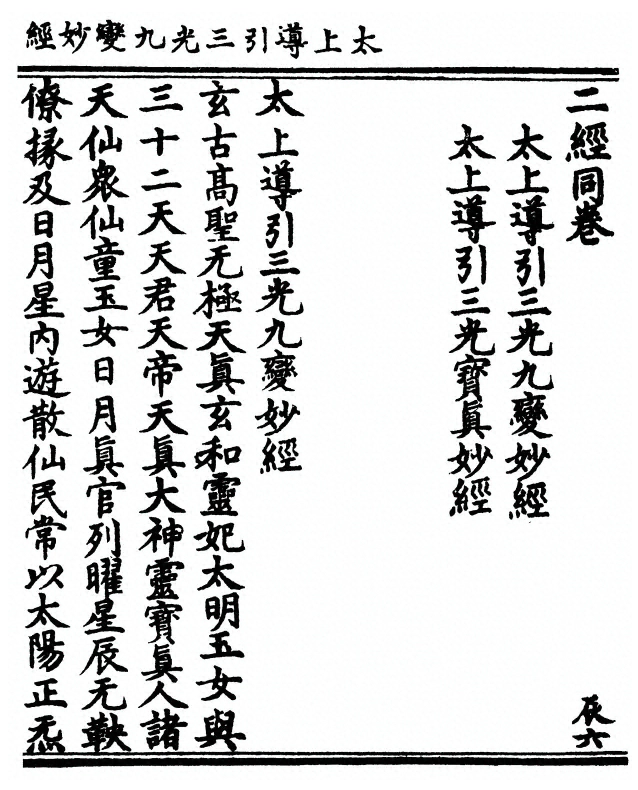 太上導引三光九變妙經
二經同卷
辰六
太上導引三光九變妙經
太上導引三光寶眞妙經
太上導引三光九變妙經
玄古髙聖无極天眞玄和靈妃太明玉女與
三十二天天君天帝天眞大神靈寶眞人諸
天仙衆仙童玉女日月眞官列曜星辰无鞅
僚掾及日月星内遊散仙民常以太陽正炁